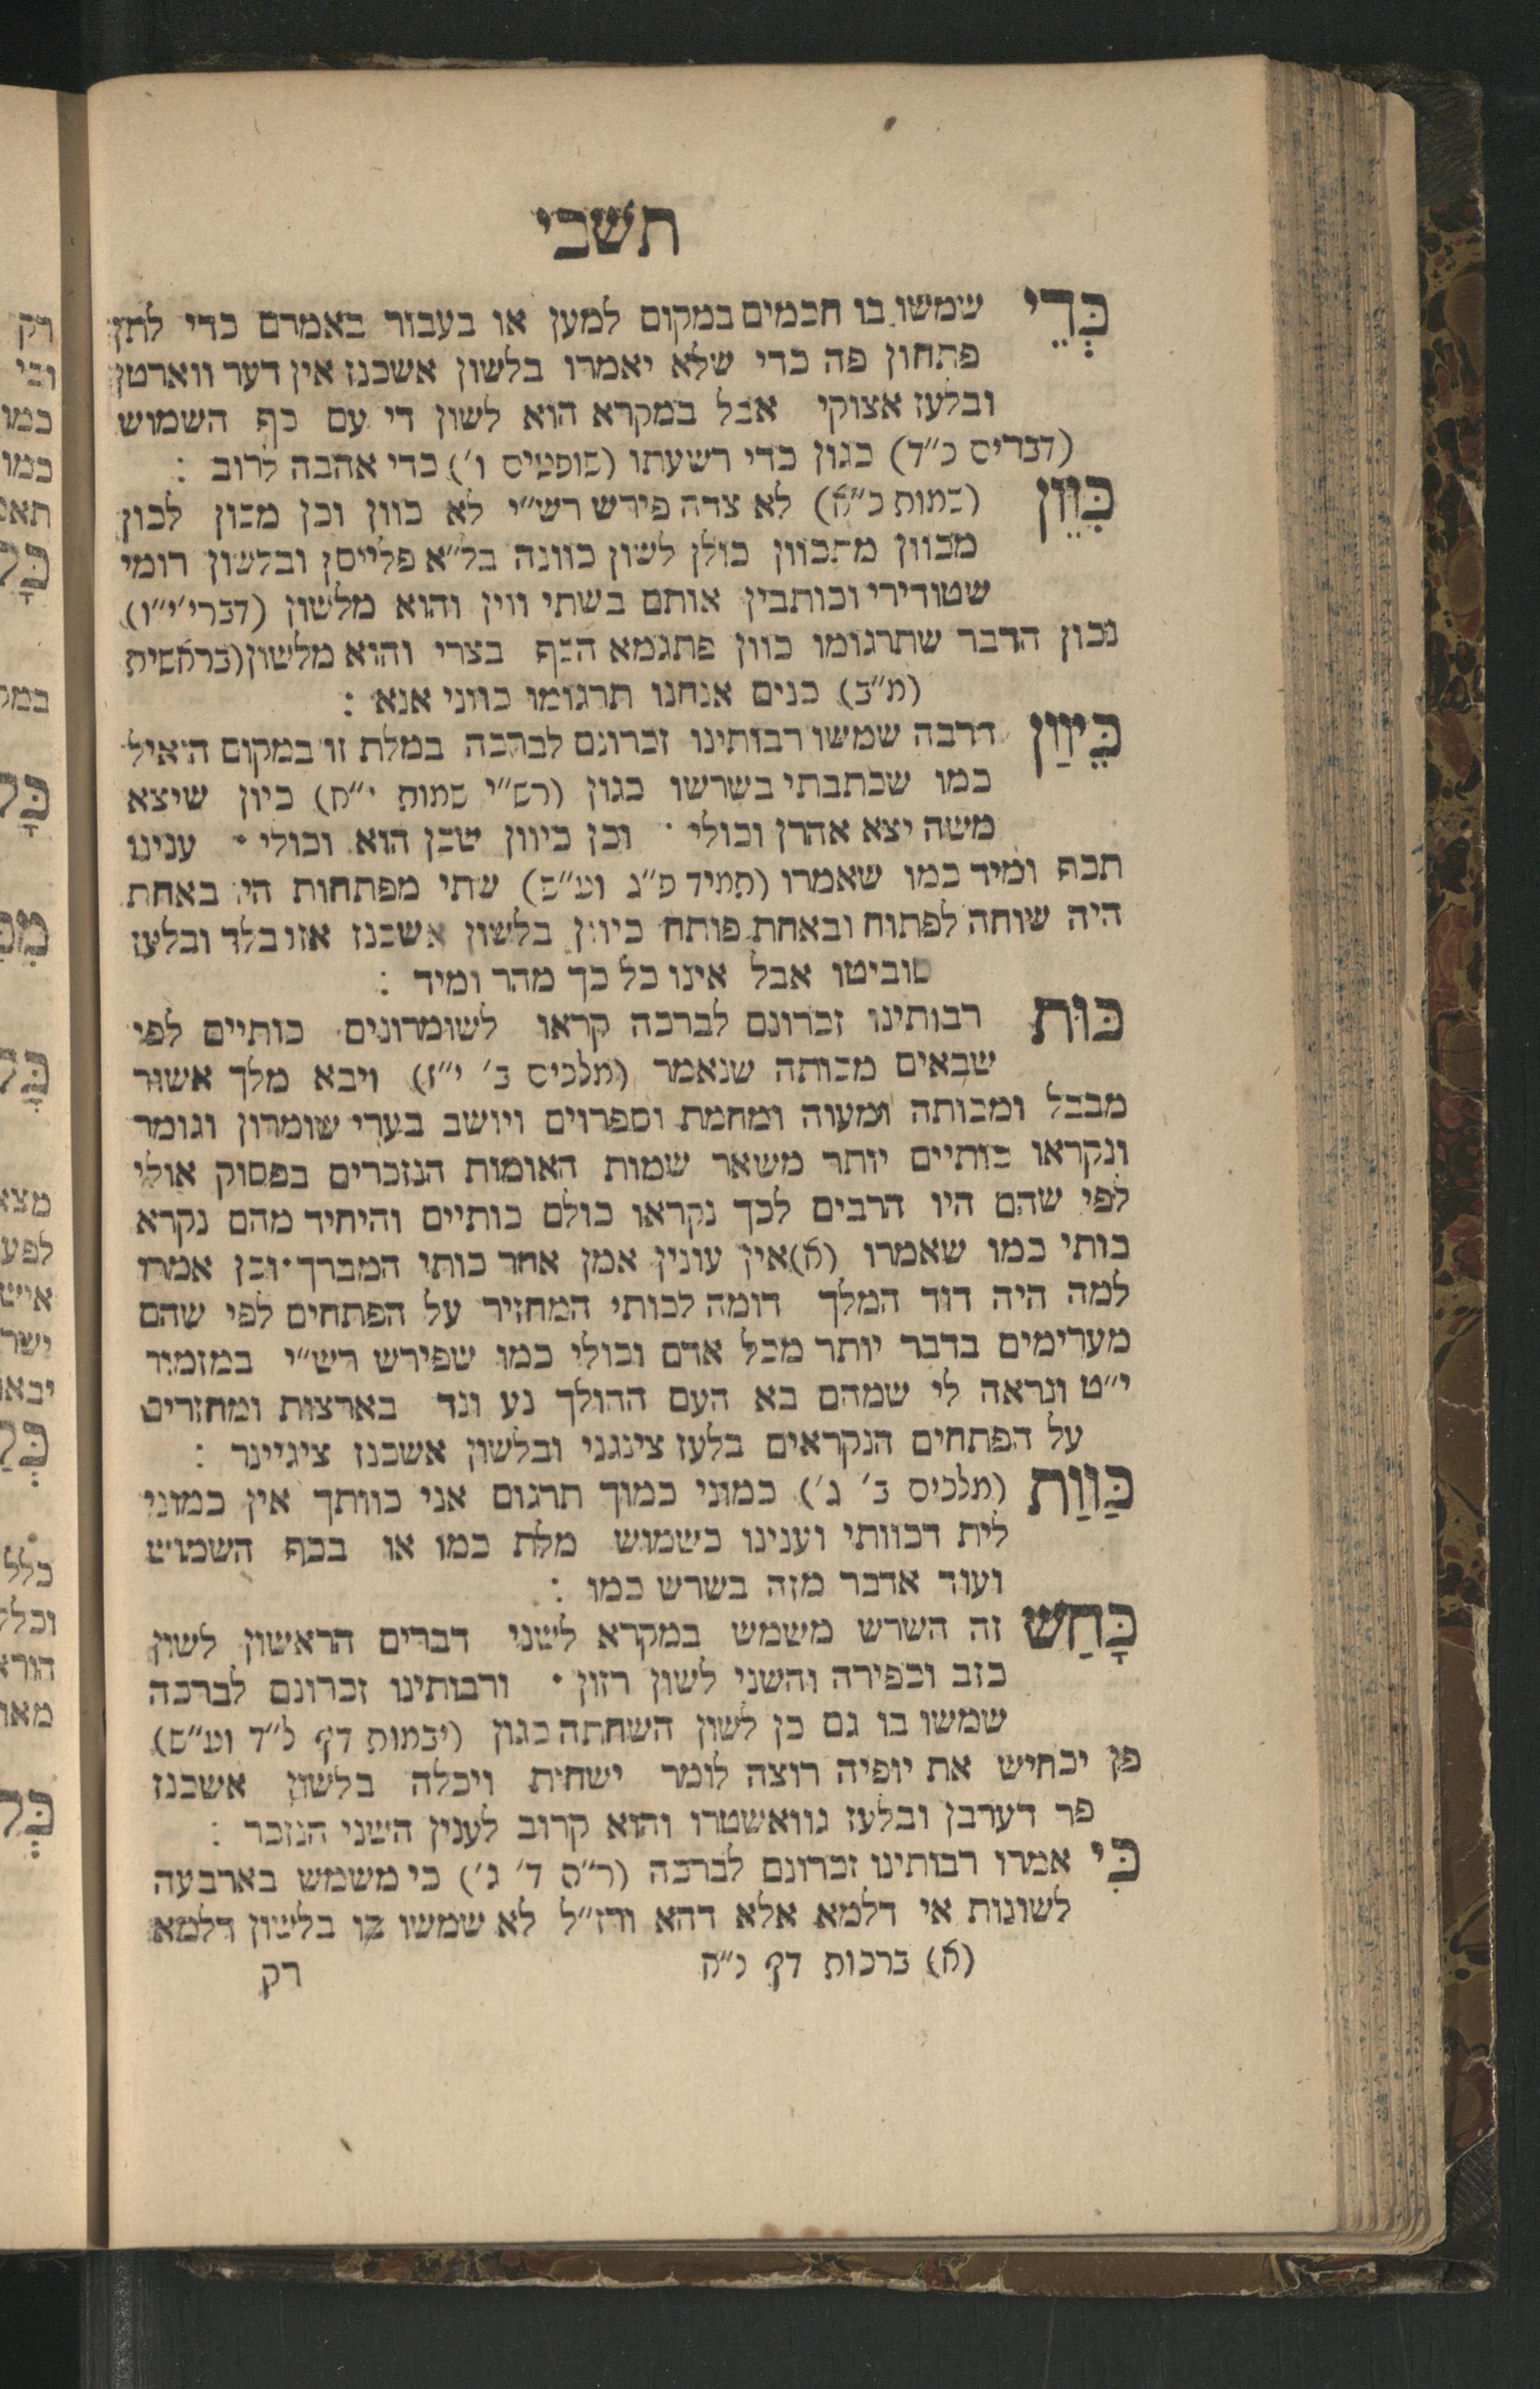 תשבי
כְּדֵי שמשו בו חכמים במקום למען או בעבור באמרם כדי לתן
פתחון פה כדי שלא יאמרו בלשון אשכנז אין דער ווארטן
ובלעז אצוקי אבל במקרא הוא לשון די עם כף השמוש
(דברים כ״ד) כגון כדי רשעתו (שופטים ו׳) כדי אהבה לרוב :
כֵּוֵּן (שמות כ״א) לא צדה פירש רש״י לא כוון וכן מכון לכון
מכוון מתכוון כולן לשון כוונה בל״א פלייסן ובלשון רומי
שטודירי וכותבין אותם בשתי ווין והוא מלשון (דברי׳ י״ו)
נכון הדבר שתרגומו כוון פתגמא הכף בצרי והוא מלשון (בראשית
(מ״ב) כנים אנחנו תרגומו כווני אנא :
כֵּיוָן הרבה שמשו רבותינו זכרונם לברכה במלת זו במקום הואיל
כמו שכתבתי בשרשו כגון (רש״י שמות י״ח) כיון שיצא
משה יצא אהרן וכולי · וכן כיוון שכן הוא וכולי · ענינו
תכף ומיד כמו שאמרו (תמיד פ״ג וע״ש) שתי מפתחות היו באחת
היה שוחה לפתוח ובאחת פותח כיוון בלשון אשכנז אזו בלד ובלעז
סוביטו אבל אינו כל כך מהר ומיד :
כּוּת רבותינו זכרונם לברכה קראו לשומרונים כותיים לפי
שבאים מכותה שנאמר (מלכים ב׳ י״ז) ויבא מלך אשור
מבבל ומכותה ומעוה ומחמת וספרוים ויושב בערי שומרון וגומר
ונקראו כותיים יותר משאר שמות האומות הנזכרים בפסוק אולי
לפי שהם היו הרבים לכך נקראו כולם כותיים והיחיד מהם נקרא
כותי כמו שאמרו (א) אין עונין אמן אחר כותי המברך · וכן אמרו
למה היה דוד המלך דומה לכותי המחזיר על הפתחים לפי שהם
מערימים בדבר יותר מכל אדם וכולי כמו שפירש רש״י במזמור
י״ט ונראה לי שמהם בא העם ההולך נע ונד בארצות ומחזרים
על הפתחים הנקראים בלעז צינגני ובלשון אשכנז ציגיינר :
כַּוַּת (מלכים ב׳ ג׳) כמוני כמוך תרגום אני כוותך אין כמוני
לית דכוותי וענינו כשמוש מלת כמו או בכף השמוש
ועוד אדבר מזה בשרש כמו :
כָּחַשׁ זה השרש משמש במקרא לשני דברים הראשון לשון
כזב וכפירה והשני לשון רזון · ורבותינו זכרונם לברכה
שמשו בו גם כן לשון השחתה כגון (יבמות דף ל״ד וע״ש)
פן יכחיש את יופיה רוצה לומר ישחית ויכלה בלשון אשכנז
פר דערבן ובלעז גוואשטרו והוא קרוב לענין השני הנזכר :
כִּי אמרו רבותינו זכרונם לברכה (ר״ה ד׳ ג׳) כי משמש בארבעה
לשונות אי דלמא אלא דהא ורז״ל לא שמשו בו בלשון דלמא
(א) ברכות דף נ״ה
רק